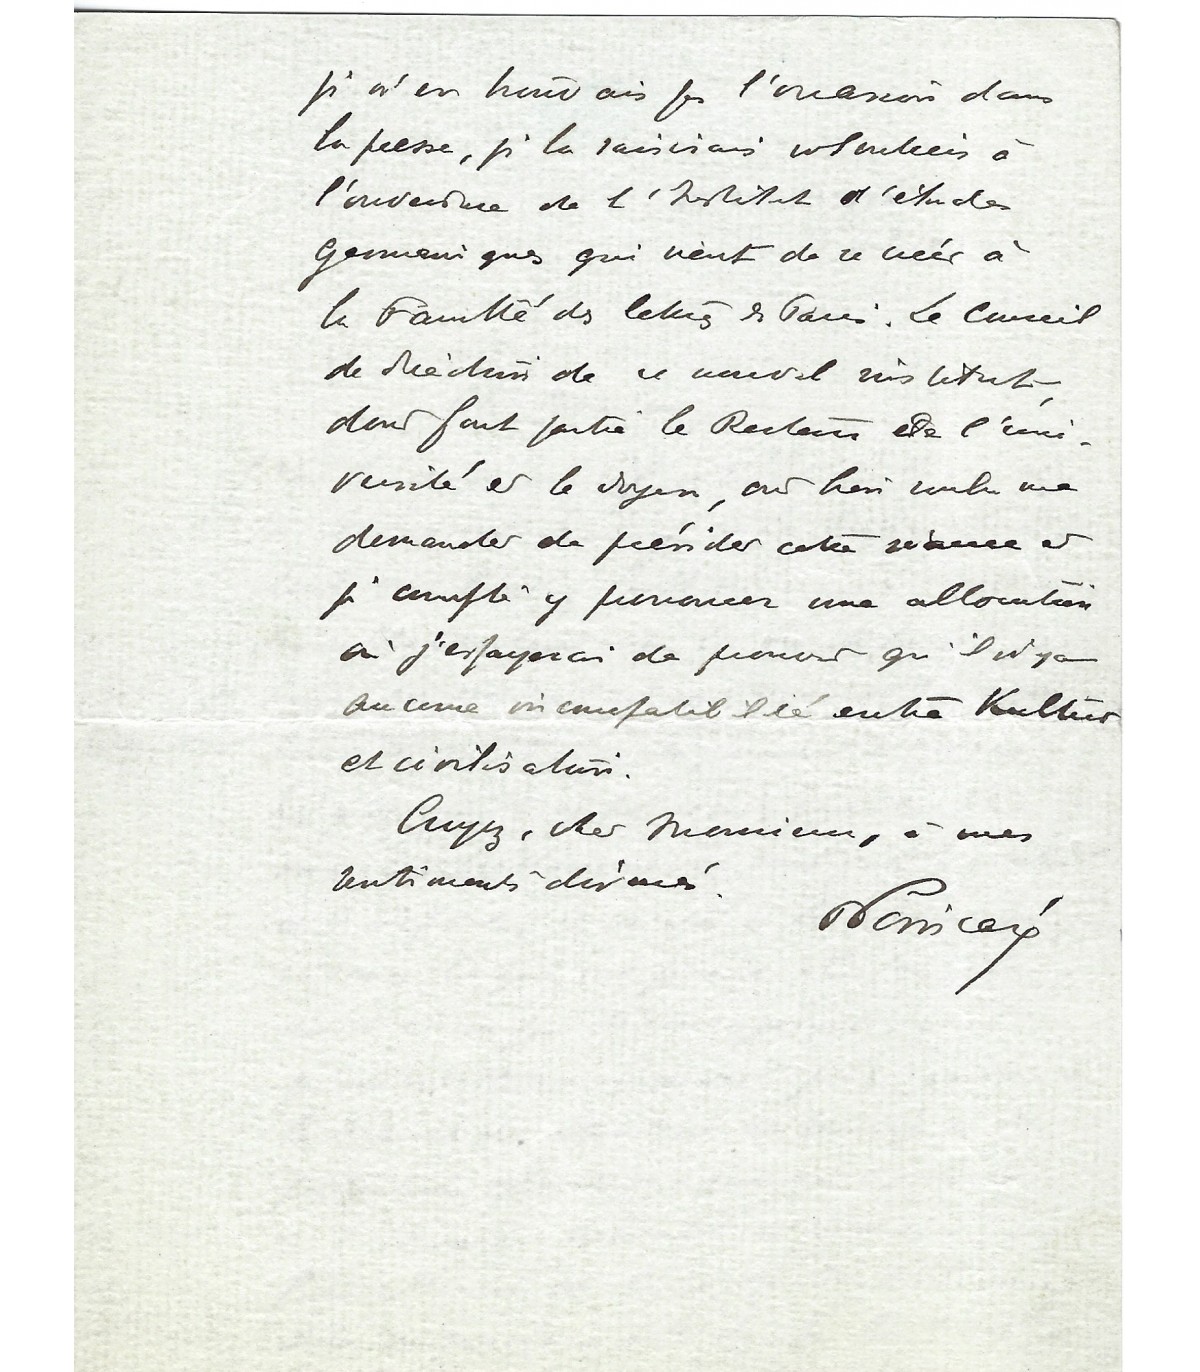 je n'en trouvais pas l'occasion dans
la presse, je la saisirais volontiers à
l'ouverture de l'Institut d'études
germaniques qui vient de se créer à
la Faculté des lettres de Paris. Le Conseil
de direction de ce nouvel institut,
dont font partie le Recteur de l'uni-
versité et le doyen, ont bien voulu me
demander de présider cette séance et
je compte y prononcer une allocution
où j'essayerai de prouver qu'il n'y a
aucune incompatibilité entre Kultur
et civilisation.
Croyez, cher Monsieur, à mes
sentiments dévoués.
RPoincaré